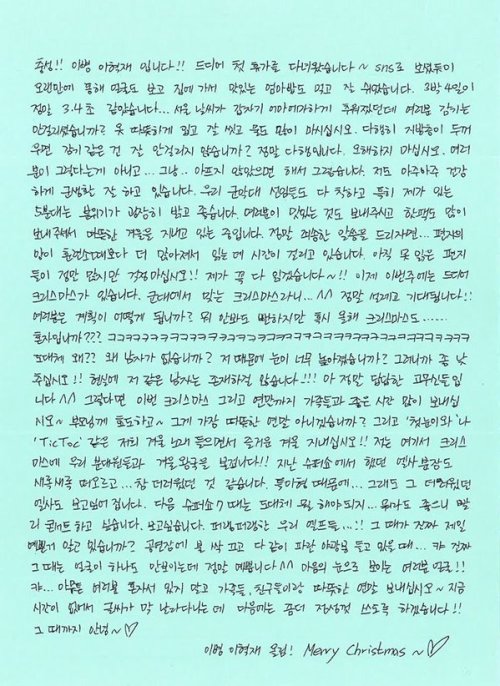 충성!! 이병 이혁재 입니다!! 드디어 첫 휴가를 다녀왔습니다~ sns로 보셨듯이
오랜만에 동해 얼굴도 보고 집에 가서 맛있는 엄마밥도 먹고 잘 쉬었습니다. 3박 4일이
정말 3.4초 같았습니다... 서울 날씨가 갑자기 어마어마하게 추워졌던데 여러분 감기는
안걸리셨습니까? 옷 따뜻하게 입고 잘 씻고 물도 많이 마시십시오. 다행히 지방층이 두꺼
우면 감기같은 건 잘 안걸리지 않습니까? 정말 다행입니다. 오해하지 마십시오. 여러
분이 그렇다는게 아니고... 그냥.. 아프지 않았으면 해서 그렇습니다. 저도 아주아주 건강
하게 군생활 잘 하고 있습니다. 우리 군악대 선임들도 다 착하고 특히 제가 있는
5분대는 분위기가 굉장히 밝고 좋습니다. 여러분이 맛있는 것도 보내주시고 핫팩도 많이
보내주셔서 따뜻한 겨울을 지내고 있는 중입니다. 정말 죄송한 말씀을 드리자면... 편지의
양이 훈련소때보다 더 많아져서 읽는 데 시간이 걸리고 있습니다. 아직 못 읽은 편지
들이 정말 많지만 걱정마십시오!! 제가 꼭 다 읽겠습니다~!! 이제 이번주에는 드디어
크리스마스가 있습니다. 군대에서 맞는 크리스마스라니... ^^ 정말 설레고 기대됩니다!!
여러분은 계획이 어떻게 됩니까? 뭐 안봐도 뻔하지만 혹시 올해 크리스마스도......
혼자입니까??? ㅋㅋㅋㅋㅋㅋㅋㅋㅋㅋㅋㅋㅋㅋㅋㅋㅋㅋㅋㅋㅋㅋㅋㅋ
도대체 왜?? 왜 남자가 없습니까? 저 때문에 눈이 너무 높아졌습니까? 그러니까 좀 낮
추십시오!! 현실에 저 같은 남자는 존재하질 않습니다!!! 아 정말 답답한 고무신들입
니다 ^^ 그렇다면 이번 크리스마스 그리고 연말까지 가족들과 좋은 시간 많이 보내십
시오~ 부모님께 효도하고~ 그게 가장 따뜻한 연말 아니겠습니까? 그리고 '첫눈이와'나
'TicToc' 같은 저희 겨울 노래 들으면서 즐거운 겨울 지내십시오! 저는 여기서 크리스
마스에 우리 분대원들과 겨울왕국을 보겠습니다!! 지난 슈퍼쇼에서 했던 엘사분장도
새록새록 떠오르고... 참 더러웠던 것 같습니다. 동해 때문에... 그래도 그 더러웠던
엘사도 보고싶어집니다. 다음 슈퍼쇼7 때는 도대체 뭘 해야되지... 뭐라도 좋으니 빨
리 콘서트하고 싶습니다. 보고싶습니다. 퍼렁퍼렁한 우리 엘프들...!! 그 때가 진짜 제일
예쁜거 알고 있습니까? 공연장에 불 싹 끄고 다같이 파란 야광봉 들고 있을 때... 캬 진짜
그 때는 얼굴이 하나도 안보이는데 정말 예쁩니다 ^^ 마음의 눈으로 보이는 여러분 얼굴!!
캬... 아무튼 여러분 혼자서 있지 말고 가족들, 친구들이랑 따뜻한 연말 보내십시오~ 지금
시간이 없어서 글씨가 막 날라다니는데 다음에는 좀더 정성껏 쓰도록 하겠습니다!!
그 때까지 안녕~♡
이병 이혁재 올림! Merry Christmas~♡